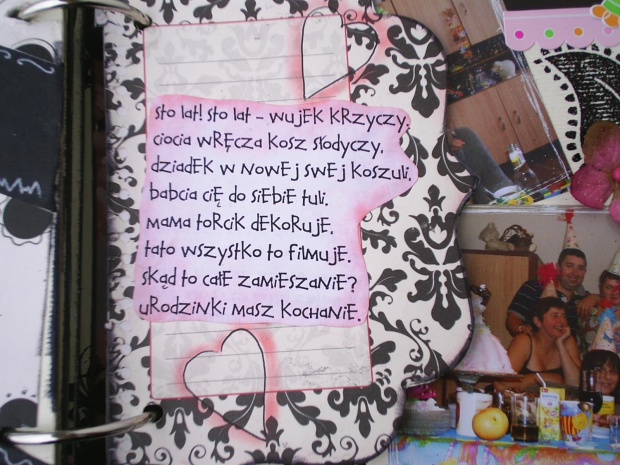 Sto lat! Sto lat - wujek krzyczy,
ciocia wręcza kosz słodyczy,
dziadek w nowej swej koszuli,
babcia cię do siebie tuli.
mama torcik dekoruje,
tato wszystko to filmuje.
skąd to całe zamieszanie?
urodzinki masz kochanie.